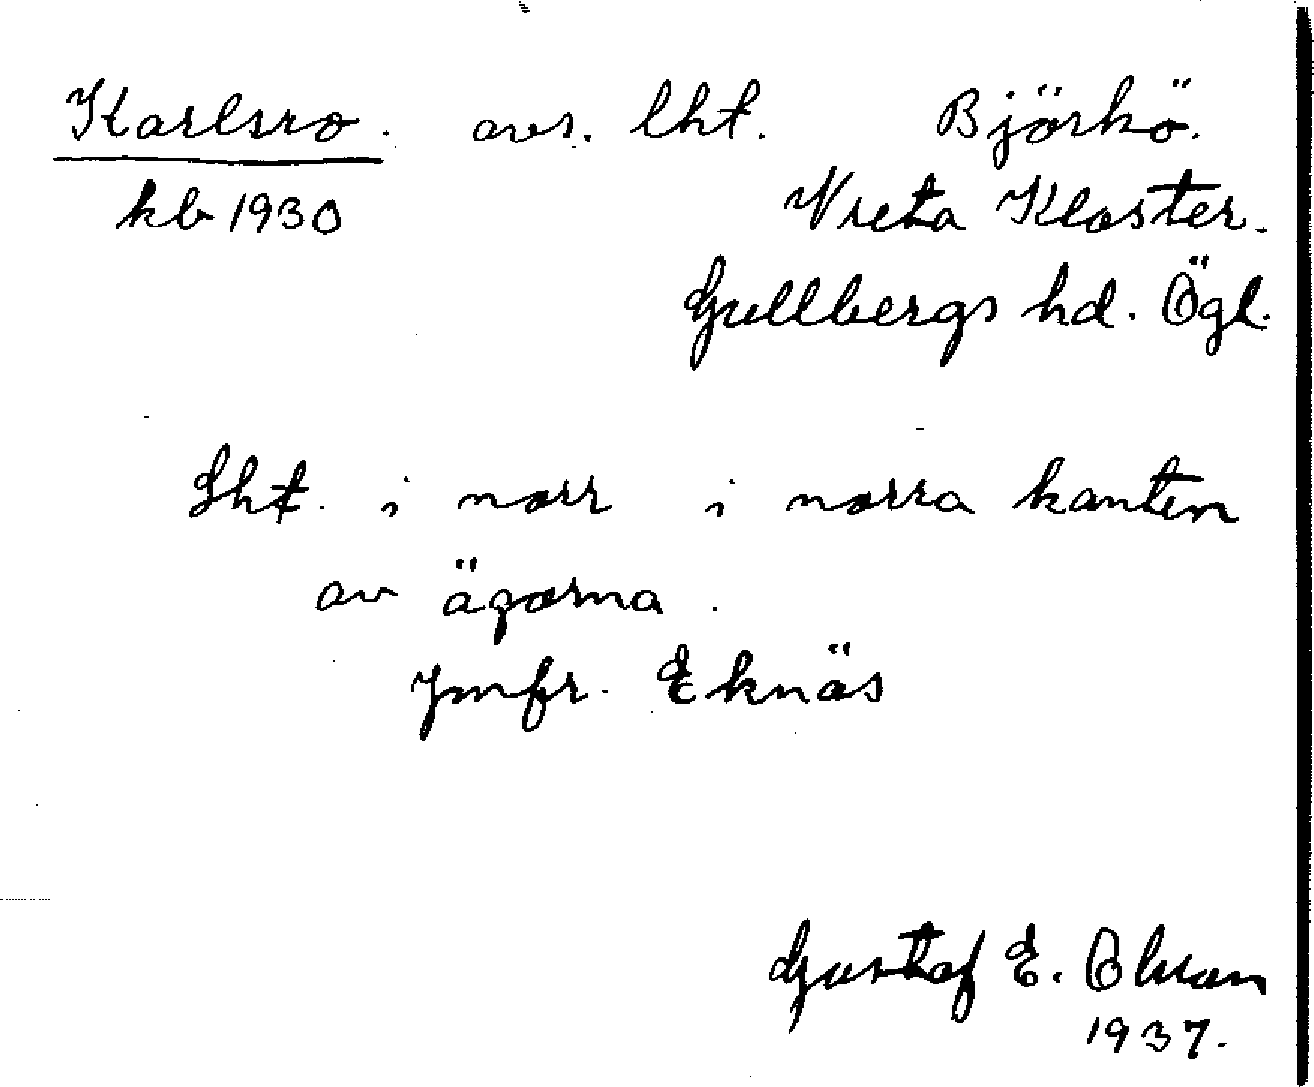 Karlsro. avs. lht. Björkö.
kb 1930 Vreta Kloster.
Gullbergs hd. Ögl.
Lht. i norr i norra kanten
av ägorna.
Jmfr. Eknäs
Gustaf E. Olsson
1937.